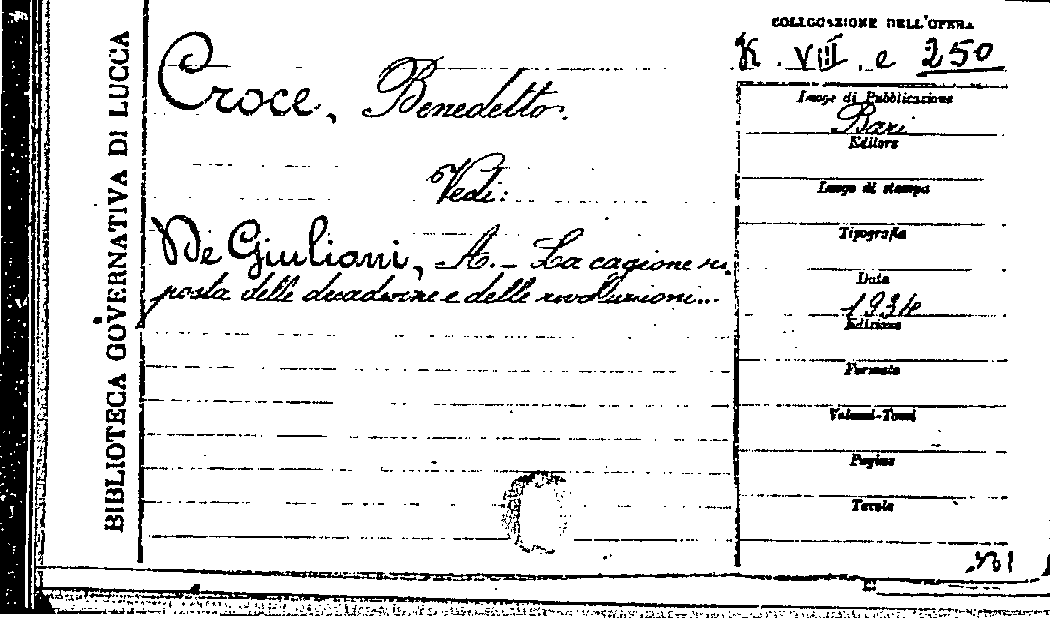 BIBLIOTECA GOVERNATIVA DI LUCCA
Croce, Benedetto.
Vedi:
De Giuliani, A. - La cagione ri
posta delle decadenze e delle rivoluzioni...
COLLOCAZIONE DELL'OPERA
K. VIII. e 250
Luogo di Pubblicazione
Bari
Editore
Luogo di stampa
Tipografia
Data
1934
Edizione
Formato
Volumi-Tomi
Pagine
Tavole